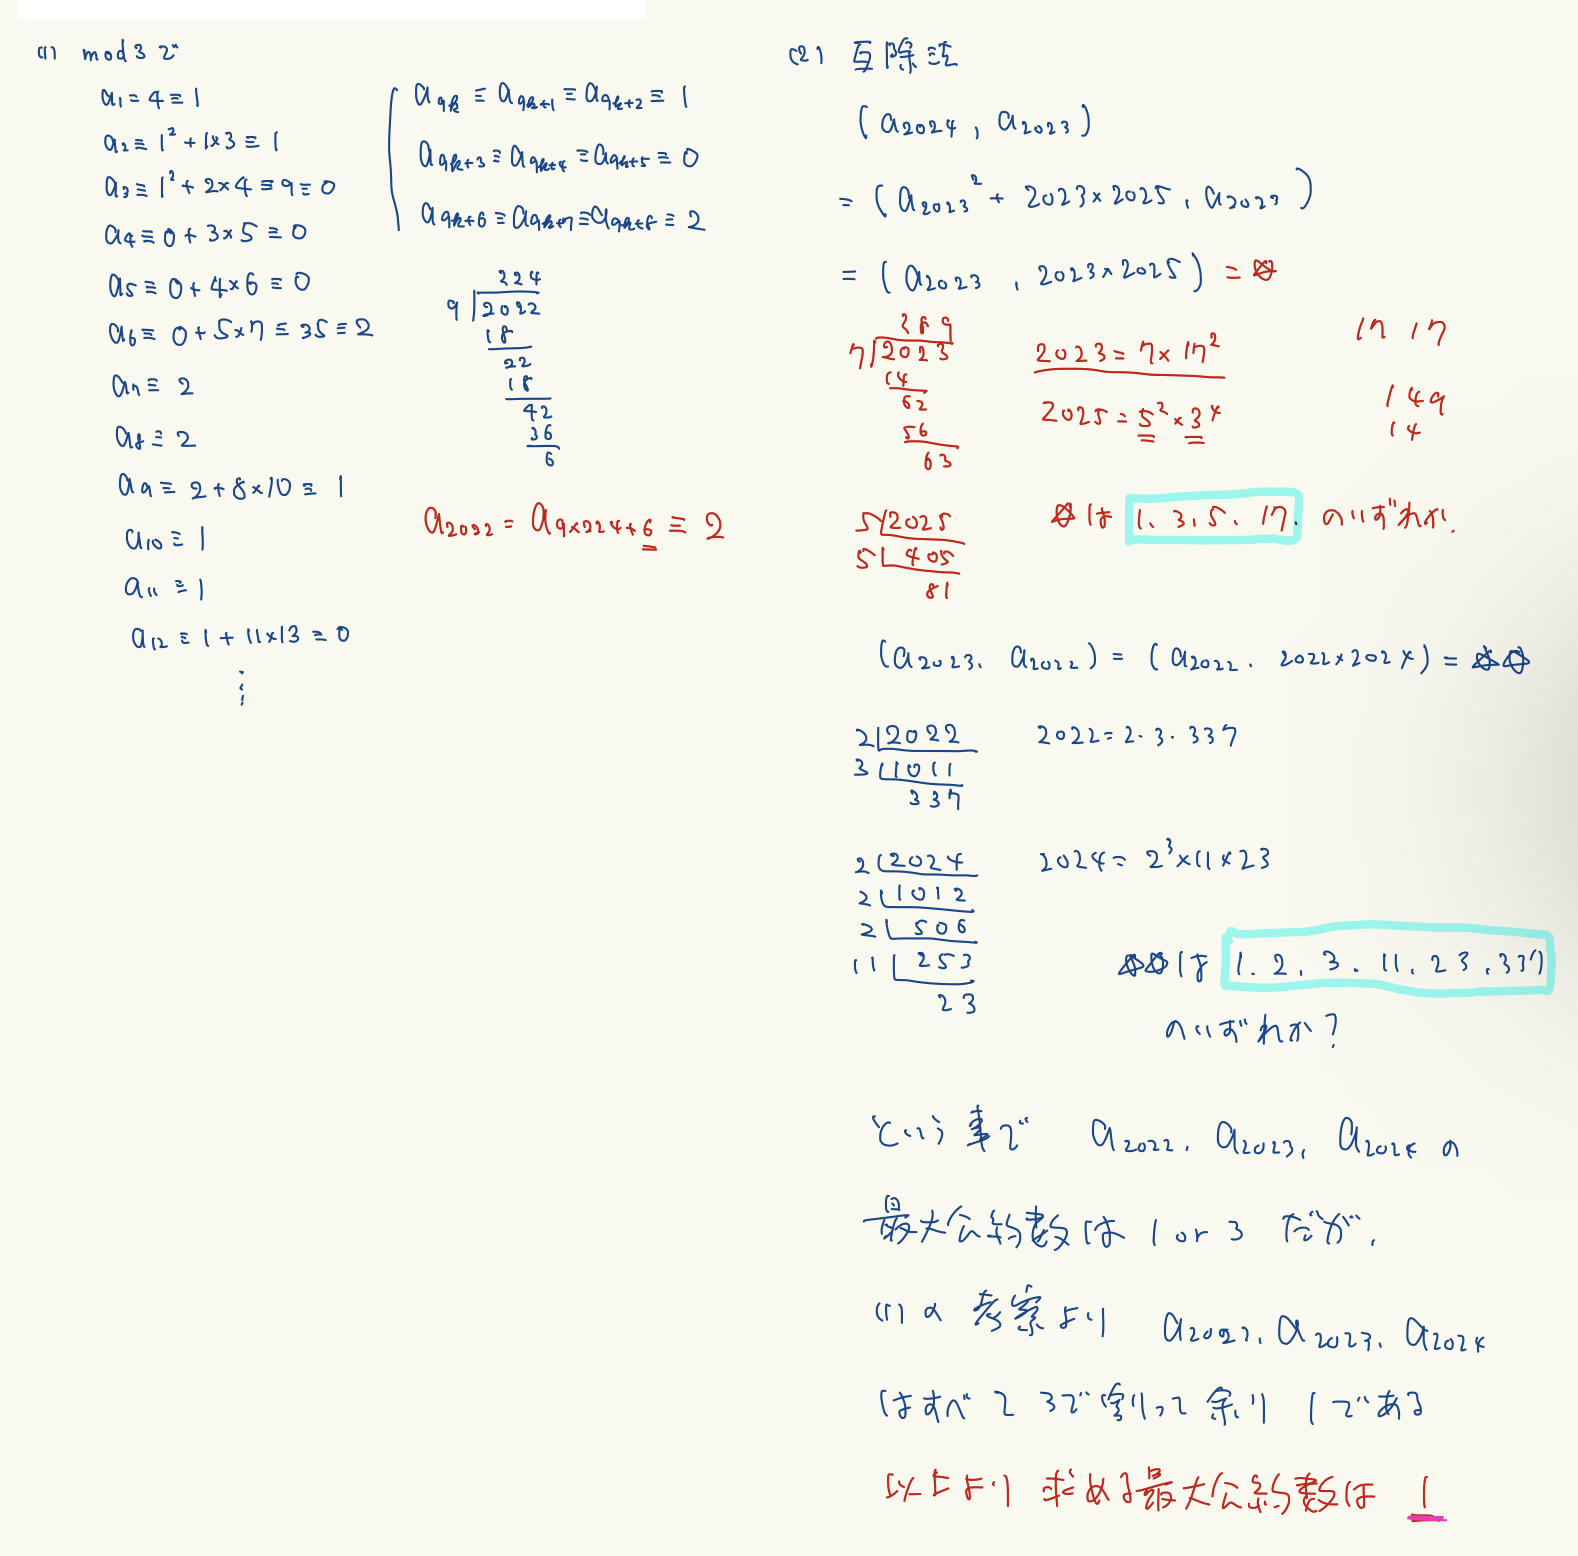 (1) mod 3 で
a₁ = 4 ≡ 1
a₂ ≡ 1² + 1×3 ≡ 1
a₃ ≡ 1² + 2×4 ≡ 9 ≡ 0
a₄ ≡ 0 + 3×5 ≡ 0
a₅ ≡ 0 + 4×6 ≡ 0
a₆ ≡ 0 + 5×7 ≡ 35 ≡ 2
a₇ ≡ 2
a₈ ≡ 2
a₉ ≡ 2 + 8×10 ≡ 1
a₁₀ ≡ 1
a₁₁ ≡ 1
a₁₂ ≡ 1 + 11×13 ≡ 0
⋮
a₉ₖ ≡ a₉ₖ₊₁ ≡ a₉ₖ₊₂ ≡ 1
a₉ₖ₊₃ ≡ a₉ₖ₊₄ ≡ a₉ₖ₊₅ ≡ 0
a₉ₖ₊₆ ≡ a₉ₖ₊₇ ≡ a₉ₖ₊₈ ≡ 2
224
9 2022
18
22
18
42
36
6
a₂₀₂₂ = a₉ₓ₂₂₄₊₆ ≡ 2
(2) 互除法
(a₂₀₂₄, a₂₀₂₃)
= (a₂₀₂₃² + 2023×2025, a₂₀₂₃)
= (a₂₀₂₃, 2023×2025) = ☆
289
7 2023
14
62
56
63
2023 = 7×17²
2025 = 5²×3⁴
17 17
149
14
5 2025
5 405
81
☆は 1. 3. 5. 17. のいずれか.
(a₂₀₂₃. a₂₀₂₂) = (a₂₀₂₂. 2022×2024) = ☆☆
2 2022
3 1011
337
2022 = 2·3·337
2 2024
2 1012
2 506
11 253
23
2024 = 2³×11×23
☆☆は 1. 2. 3. 11. 23. 337
のいずれか?
という事で a₂₀₂₂, a₂₀₂₃, a₂₀₂₄ の
最大公約数は 1 or 3 だが,
(1)の考察より a₂₀₂₂, a₂₀₂₃, a₂₀₂₄
はすべて 3で割って余り 1である
以上より 求める最大公約数は 1